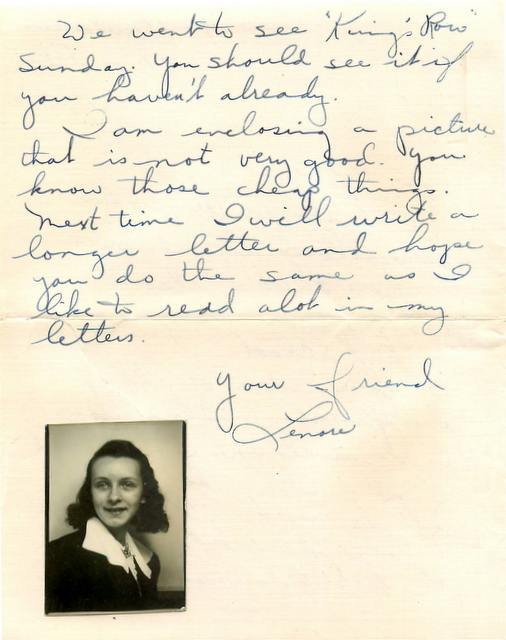 We went to see "King's Row"
Sunday. You should see it if
you haven't already.
I am enclosing a picture
that is not very good. You
know those cheap things.
Next time I will write a
longer letter and hope
you do the same as I
like to read alot in my
letters.
Your friend
Lenore